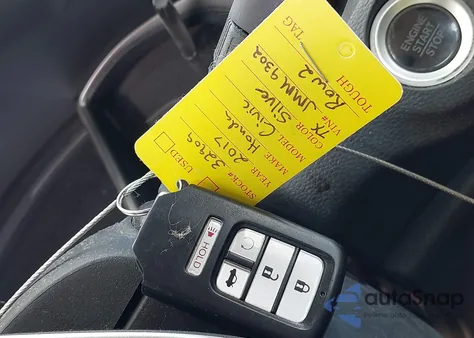 TOUGH TAG
USED
STOCK# 32969
YEAR 2017
MAKE Honda
MODEL Civic
COLOR Silver
VIN# JMM9302
7K Row 2
HOLD
ENGINE
START
STOP
autoSnap